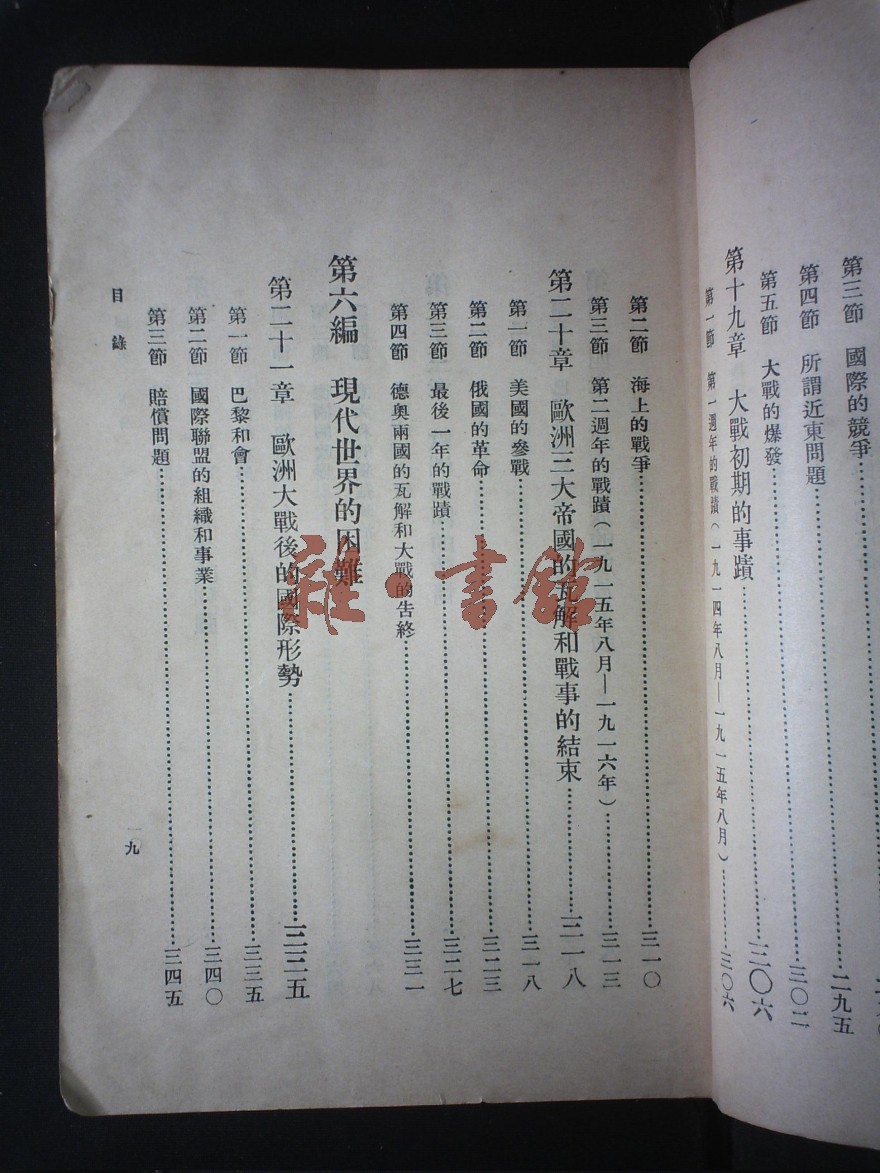 第三節 國際的競爭
第四節 所謂近東問題……二九五
第五節 大戰的爆發……三〇二
第十九章 大戰初期的事蹟……三〇六
第一節 第一週年的戰蹟(一九一四年八月—一九一五年八月)……三〇六
第二節 海上的戰爭……三一〇
第三節 第二週年的戰蹟(一九一五年八月—一九一六年)……三一三
第二十章 歐洲三大帝國的瓦解和戰事的結束……三一八
第一節 美國的參戰……三一八
第二節 俄國的革命……三二三
第三節 最後一年的戰蹟……三二七
第四節 德奧兩國的瓦解和大戰的告終……三三一
第六編 現代世界的困難
第二十一章 歐洲大戰後的國際形勢……三三五
第一節 巴黎和會……三三五
第二節 國際聯盟的組織和事業……三四〇
第三節 賠償問題……三四五
目錄
九
雜·書館